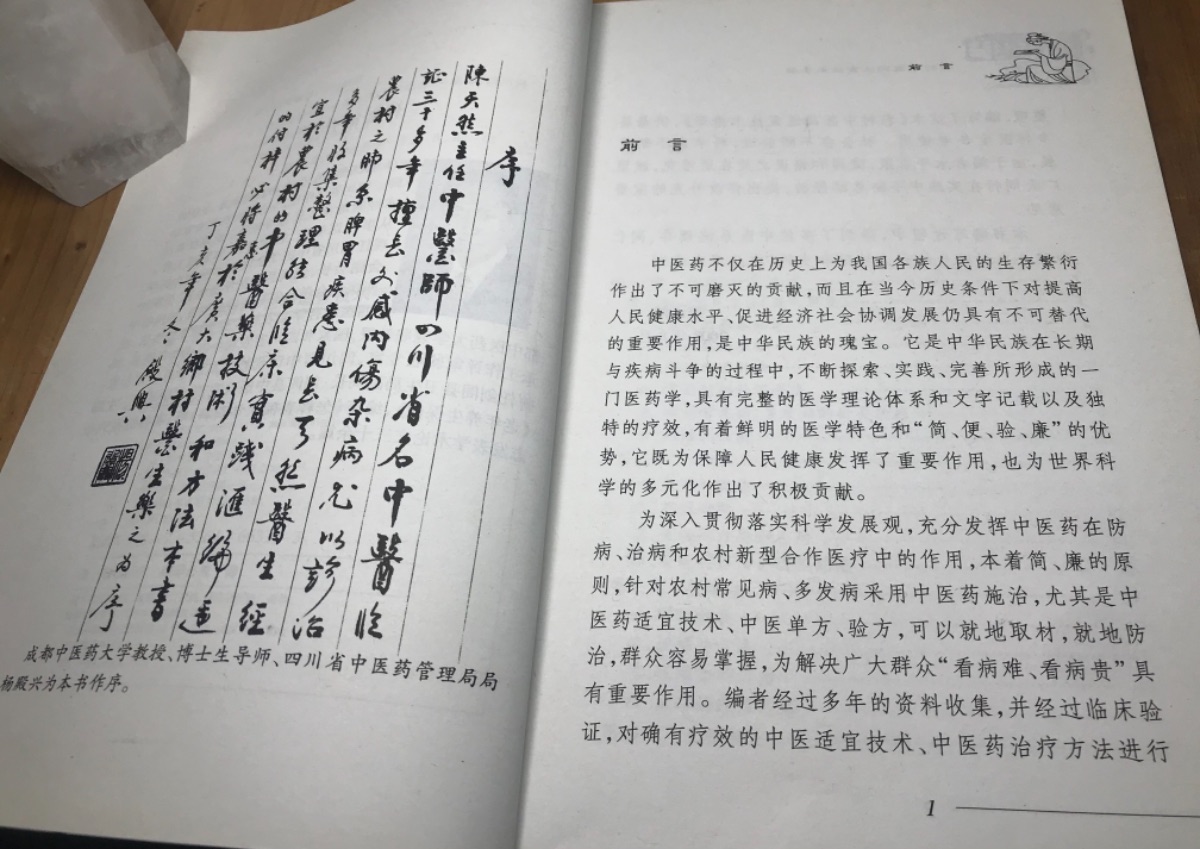 序
陳天然主任中醫師四川省名中醫临
証三十多年擅长外感内傷杂病尤以診治
農村之肺系脾胃疾患見长天然醫生經
多年收集整理结合临床實踐滙编適
宜於農村的中醫藥技術和方法本書
的付梓必将嘉惠於广大鄉村醫生樂之为序
丁亥年冬 殿興
成都中医药大学教授、博士生导师、四川省中医药管理局局
杨殿兴为本书作序。
前 言
前 言
中医药不仅在历史上为我国各族人民的生存繁衍
作出了不可磨灭的贡献,而且在当今历史条件下对提高
人民健康水平、促进经济社会协调发展仍具有不可替代
的重要作用,是中华民族的瑰宝。它是中华民族在长期
与疾病斗争的过程中,不断探索、实践、完善所形成的一
门医药学,具有完整的医学理论体系和文字记载以及独
特的疗效,有着鲜明的医学特色和“简、便、验、廉”的优
势,它既为保障人民健康发挥了重要作用,也为世界科
学的多元化作出了积极贡献。
为深入贯彻落实科学发展观,充分发挥中医药在防
病、治病和农村新型合作医疗中的作用,本着简、廉的原
则,针对农村常见病、多发病采用中医药施治,尤其是中
医药适宜技术、中医单方、验方,可以就地取材,就地防
治,群众容易掌握,为解决广大群众“看病难、看病贵”具
有重要作用。编者经过多年的资料收集,并经过临床验
证,对确有疗效的中医适宜技术、中医药治疗方法进行
1